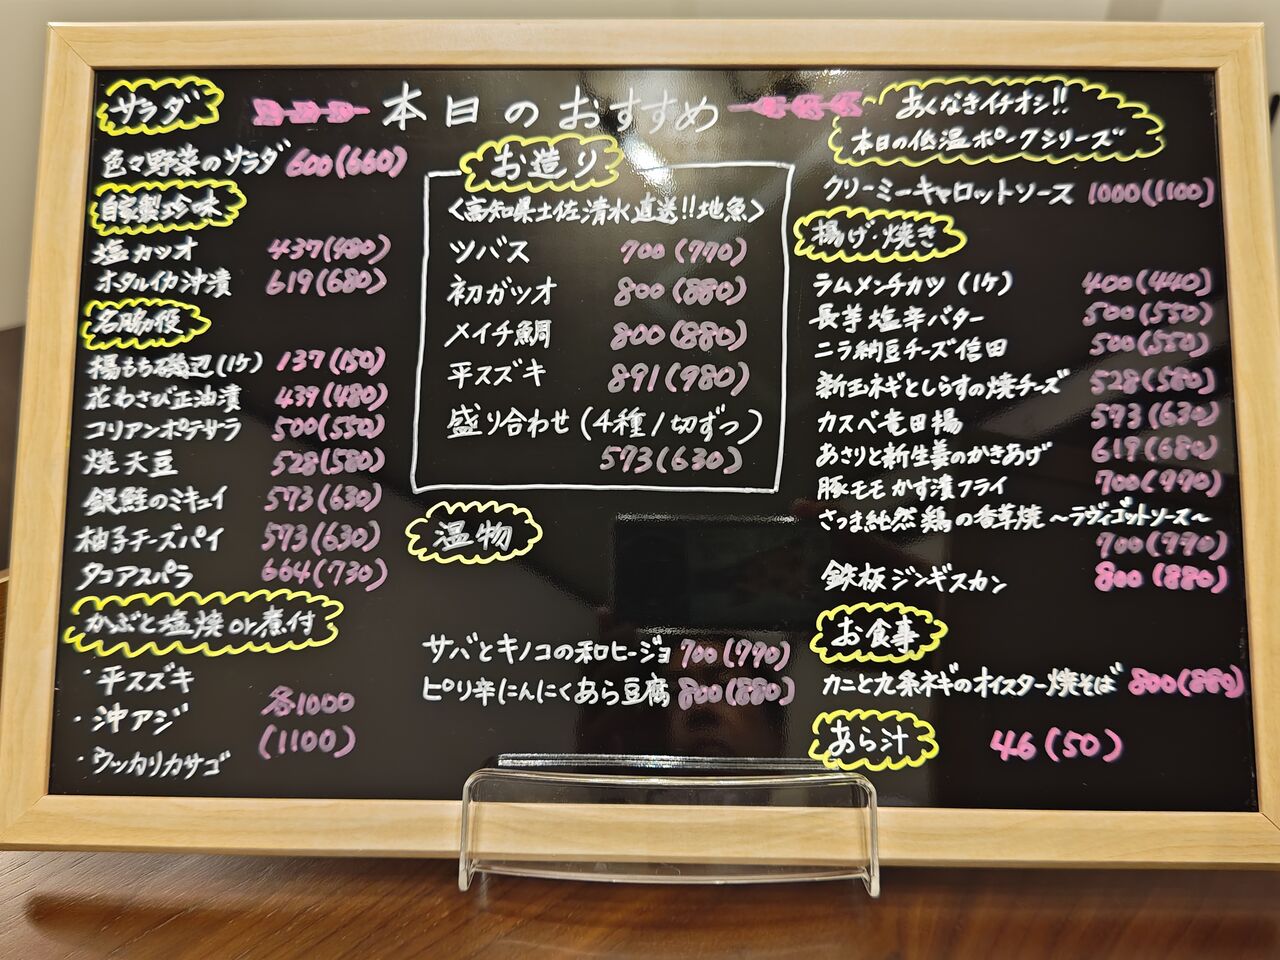 本日のおすすめ
サラダ
色々野菜のサラダ 600(660)
自家製珍味
塩カツオ 437(480)
ホタルイカ沖漬 619(680)
名脇役
揚もち磯辺(1ケ) 137(150)
花わさび正油漬 439(480)
コリアンポテサラ 500(550)
焼天豆 528(580)
銀鮭のミキュイ 573(630)
柚子チーズパイ 573(630)
タコアスパラ 664(730)
かぶと塩焼or煮付
・平スズキ
・沖アジ
・ウッカリカサゴ
各1000
(1100)
お造り
<高知県土佐清水直送!!地魚>
ツバス 700(770)
初ガツオ 800(880)
メイチ鯛 800(880)
平スズキ 891(980)
盛り合わせ(4種/1切ずつ)
573(630)
温物
サバとキノコの和ヒージョ 700(770)
ピリ辛にんにくあら豆腐 800(880)
あくなきイチオシ!!
本日の低温ポークシリーズ
クリーミーキャロットソース 1000(1100)
揚げ・焼き
ラムメンチカツ(1ケ) 400(440)
長芋塩辛バター 500(550)
ニラ納豆チーズ信田 500(550)
新玉ネギとしらすの焼チーズ 528(580)
カスベ竜田揚 573(630)
あさりと新生姜のかきあげ 619(680)
豚モモかす漬フライ 700(770)
さつま純然鶏の香草焼〜ラヴィゴットソース〜
700(770)
鉄板ジンギスカン 800(880)
お食事
カニと九条ネギのオイスター焼そば 800(880)
あら汁 46(50)